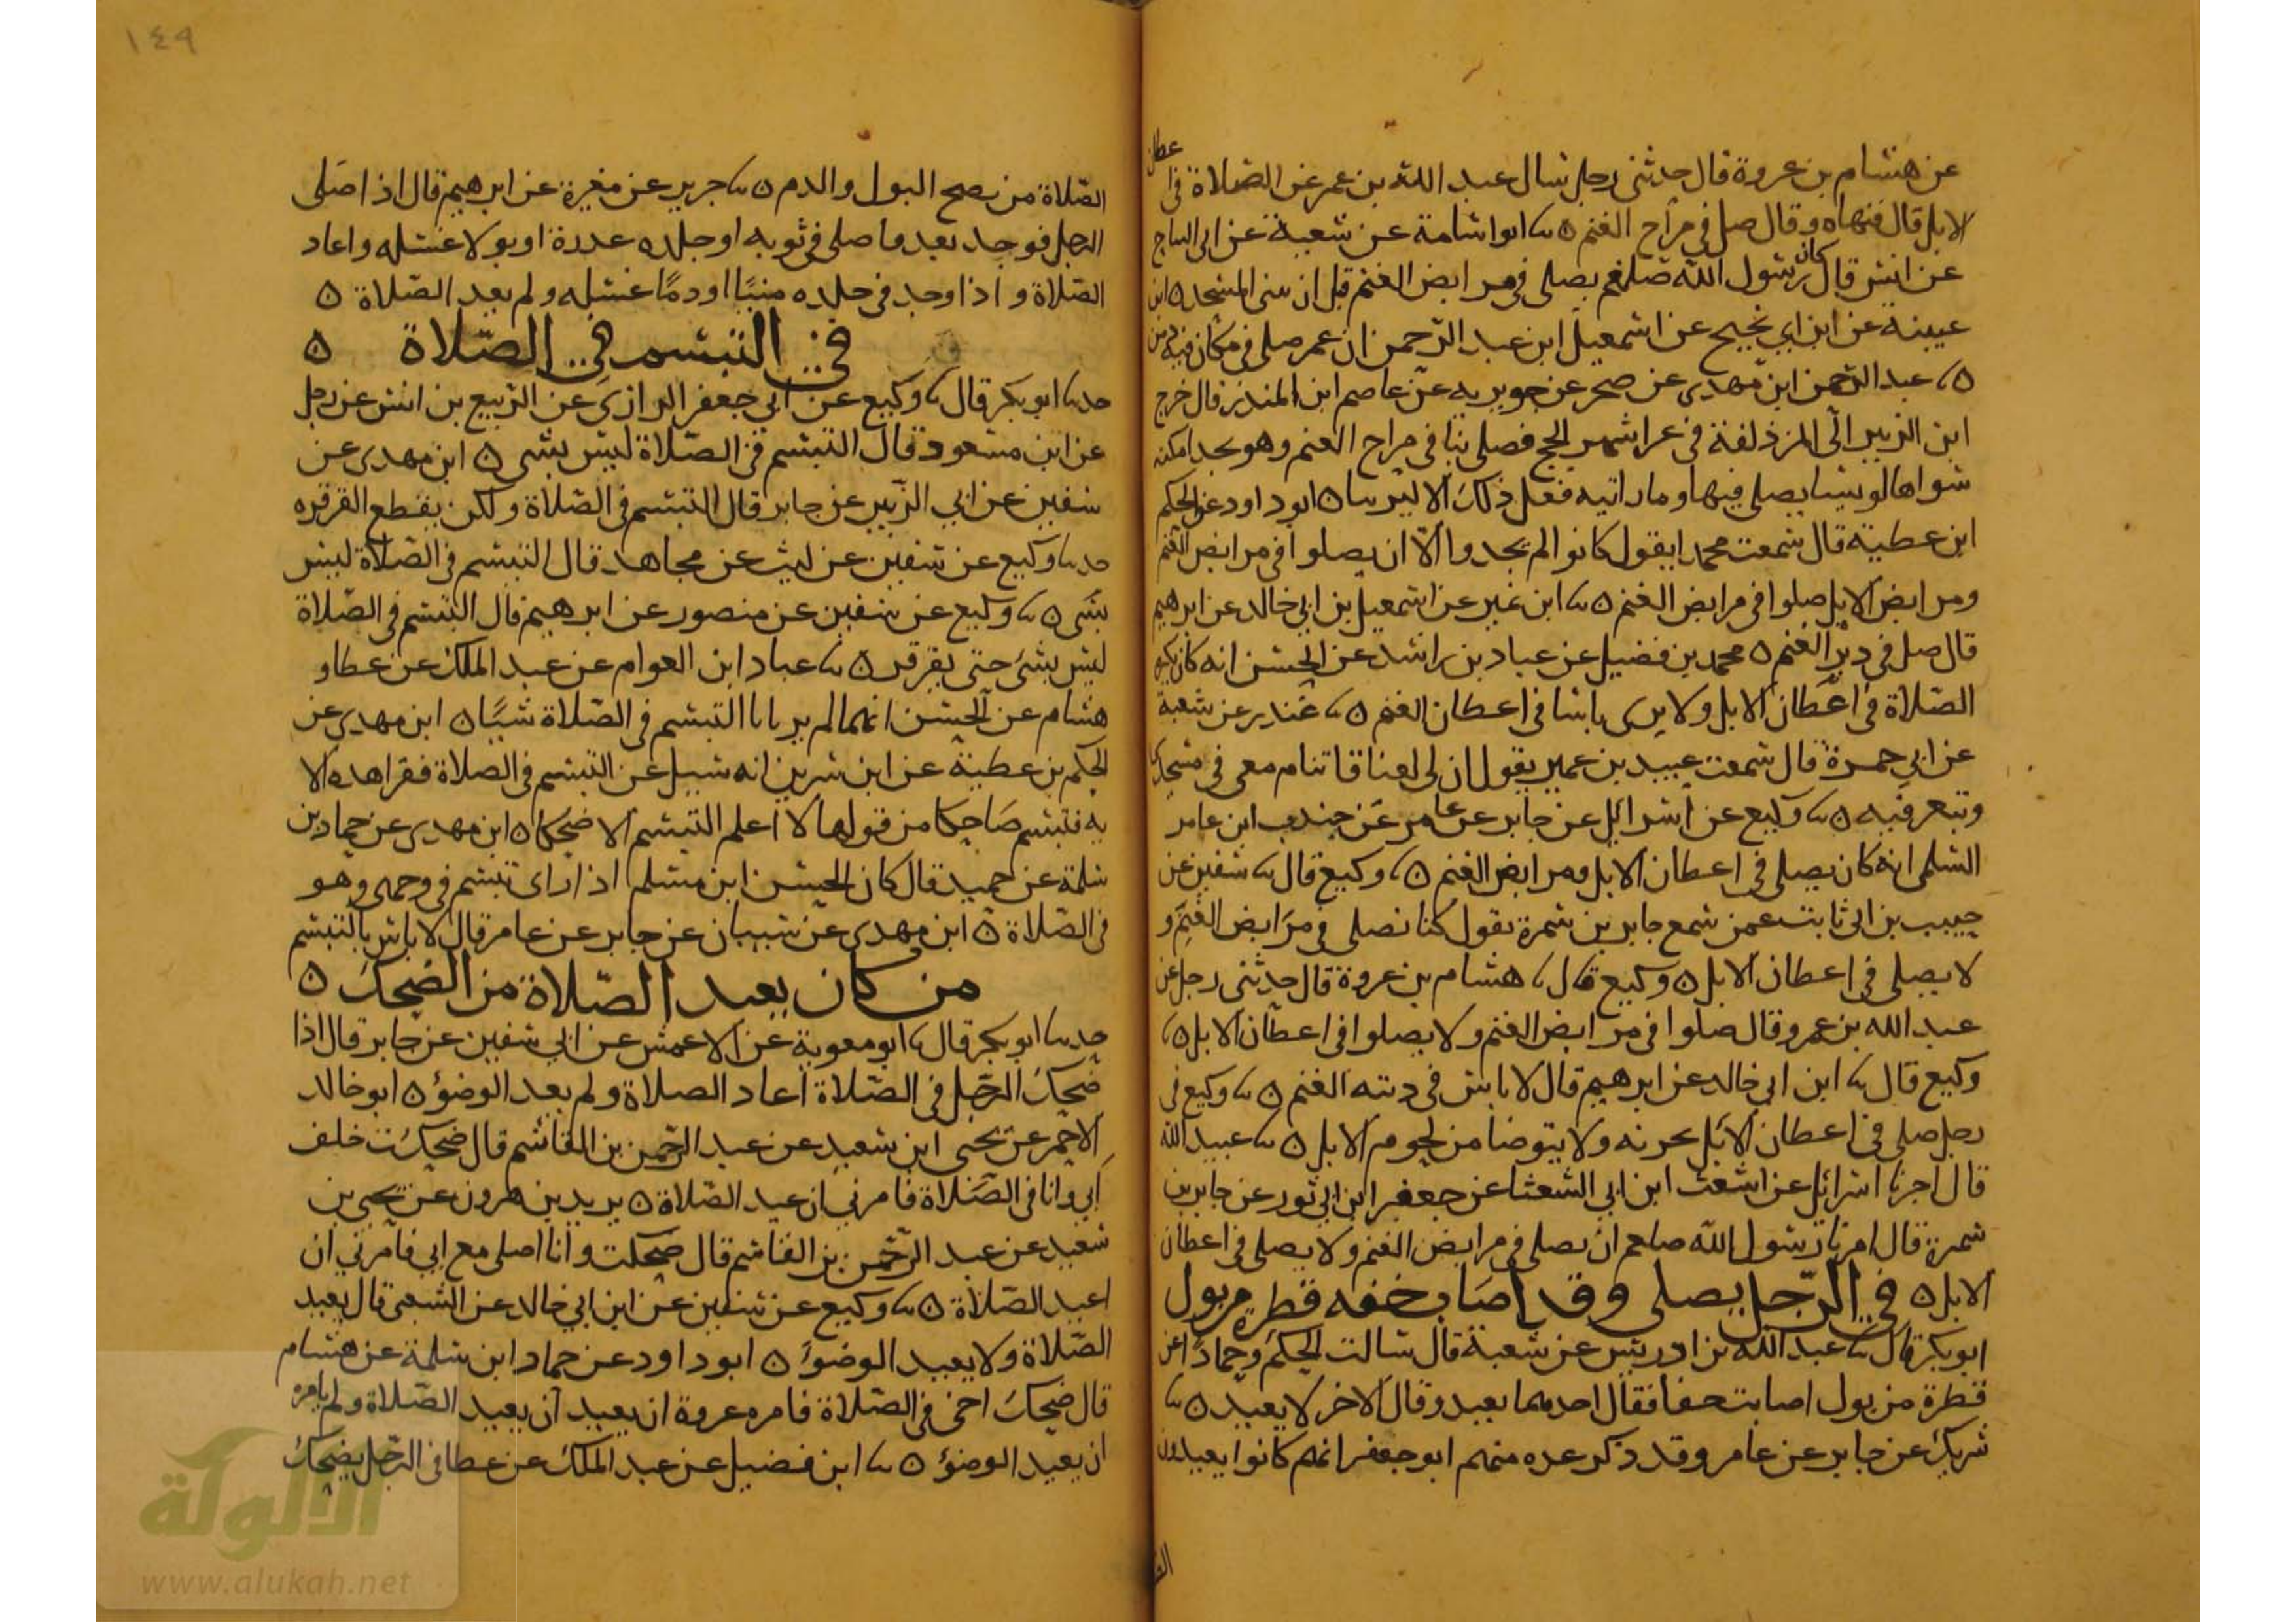 عن هشام بن عروة قال حدثنى رجل سال عبد الله بن عمر عن الصلاة فى اعطان
الابل قال فنهاه وقال صل في مراح الغنم ٥ ابو اسامة عن شعبة عن ابى التياح
عن انس قال كان رسول الله صلعم يصلى فى مرابض الغنم قبل ان يبنى المسجد ٥ ابن
عيينة عن ابن ابي نجيح عن اسمعيل ابن عبد الرحمن ان عمر صلى فى مكان فيه دمن
٥ عبد الرحمن ابن مهدى عن صخر عن جويرية عن عاصم ابن المنذر قال خرج
ابن الزبير الى المزدلفة فى غير اشهر الحج فصلى بنا فى مراح الغنم وهو يجد امكنة
سواها لو شا يصلى فيها وما راتيه فعل ذلك الا ليرينا ٥ ابو داود عن الحكم
ابن عطية قال سمعت محمدا يقول كانوا لم يجدوا الا ان يصلوا فى مرابض الغنم
ومرابض الابل صلوا فى مرابض الغنم ٥ ابن نمير عن اسمعيل بن ابي خالد عن ابرهيم
قال صل فى دبر الغنم ٥ محمد بن فضيل عن عباد بن راشد عن الحسن انه كان يكره
الصلاة فى اعطان الابل ولا يرى باسا فى اعطان الغنم ٥ غندر عن شعبة
عن ابي حمزة قال سمعت عبيد بن عمير يقول ان لى لعناقا تنام معى فى مسجدى
وتبعر فيه ٥ وكيع عن اسرائل عن جابر عن عامر عن جندب ابن عامر
السلمى انه كان يصلى فى اعطان الابل ومرابض الغنم ٥ وكيع قال سفين عن
حبيب بن ابى ثابت عمن سمع جابر بن سمرة يقول كنا نصلى فى مرابض الغنم و
لا يصلى فى اعطان الابل ٥ وكيع قال هشام بن عروة قال حدثنى رجل عن
عبد الله بن عمر وقال صلوا فى مرابض الغنم ولا يصلوا فى اعطان الابل ٥
وكيع قال ابن ابي خالد عن ابرهيم قال لا باس فى دمنة الغنم ٥ وكيع فى
رجل صلى فى اعطان الابل يجزئه ولا يتوضا من لحوم الابل ٥ عبيد الله
قال اخرنا اسرائل عن اشعث ابن ابي الشعثا عن جعفر ابن ابي ثور عن جابر بن
سمرة قال امرنا رسول الله صلعم ان نصلى فى مرابض الغنم ولا يصلى فى اعطان
الابل ٥ في الرجل يصلى وقد اصاب خفه قطرة من بول
ابو بكر قال عبد الله بن ادريس عن شعبة قال سالت الحكم وحمادا عن
قطرة من بول اصابت خفا فقال احدهما يعيد وقال الاخر لا يعيد ٥
شريك عن جابر عن عامر وقد ذكر عده منهم ابو جعفر انهم كانوا يعيدون
١٤٩
الصلاة من نضح البول والدم ٥ جرير عن مغيرة عن ابرهيم قال اذا صلى
الرجل فوجد بعد ما صلى فى ثوبه او جلده عذرة او بولا غسله واعاد
الصلاة و اذا وجد فى جلده منيا او دما غسله ولم يعد الصلاة ٥
في التبسم في الصلاة ٥
حدثنا ابو بكر قال وكيع عن ابي جعفر الرازي عن الربيع بن انس عن رجل
عن ابن مسعود قال التبسم فى الصلاة ليس بشى ٥ ابن مهدى عن
سفين عن ابي الزبير عن جابر قال التبسم فى الصلاة ولكن يقطع القرقره
حدثنا وكيع عن سفين عن ليث عن مجاهد قال التبسم فى الصلاة ليس
بشى ٥ وكيع عن سفين عن منصور عن ابرهيم قال التبسم فى الصلاة
ليس بشئ حتى يقرقر ٥ عباد ابن العوام عن عبد الملك عن عطا و
هشام عن الحسن انهما لم يريا باسا التبسم فى الصلاة شيا ٥ ابن مهدى عن
الحكم بن عطية عن ابن سرين انه سيل عن التبسم فى الصلاة فقرا هذه الا
يه فتبسم ضاحكا من قولها لا اعلم التبسم الا ضحكا ٥ ابن مهدى عن حماد بن
سلمة عن حميد قال كان الحسن ابن مسلم اذا راى تبسم فى وجهى وهو
فى الصلاة ٥ ابن مهدى عن شيبان عن جابر عن عامر قال لا باس بالتبسم
من كان يعيد الصلاة من الضحك ٥
حدثنا ابو بكر قال ابو معوية عن الاعمش عن ابي سفين عن جابر قال اذا
ضحك الرجل فى الصلاة اعاد الصلاة ولم يعد الوضؤ ٥ ابو خالد
الاحمر عن يحيى ابن سعيد عن عبد الرحمن بن القاسم قال ضحكت خلف
ابي وانا فى الصلاة فامرني ان عيد الصلاة ٥ يزيد بن هرون عن يحيى بن
سعيد عن عبد الرحمن بن القاسم قال ضحكت وانا اصلى مع ابي فامرني ان
اعيد الصلاة ٥ وكيع عن سفين عن ابن ابي خالد عن الشعبى قال يعيد
الصلاة ولا يعيد الوضؤ ٥ ابو داود عن حماد ابن سلمة عن هشام
قال ضحك اخى فى الصلاة فامره عروة ان يعيد ان يعيد الصلاة ولم يامره
ان يعيد الوضؤ ٥ ابن فضيل عن عبد الملك عن عطا فى الرجل يضحك
الألوكة
www.alukah.net